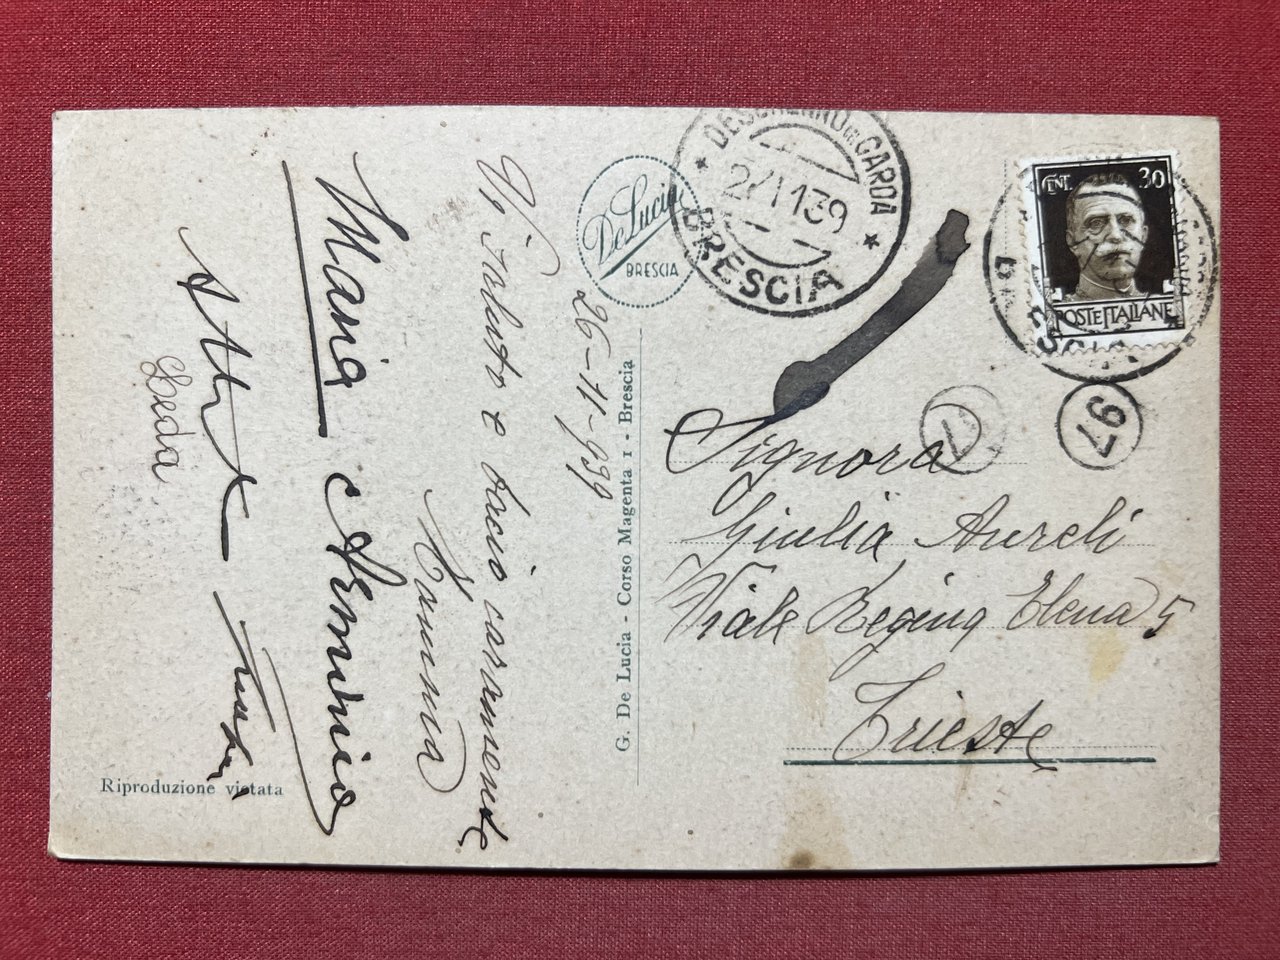 26-11-939
Vi saluto e bacio caramente
Mamma
Maria e Arminio
Leda
De Lucia
BRESCIA
G. De Lucia - Corso Magenta 1 - Brescia
Riproduzione vietata
DESENZANO DEL GARDA
BRESCIA
CENT. 30
POSTE ITALIANE
97
Signora
Giulia Aureli
Viale Regina Elena 5
Trieste